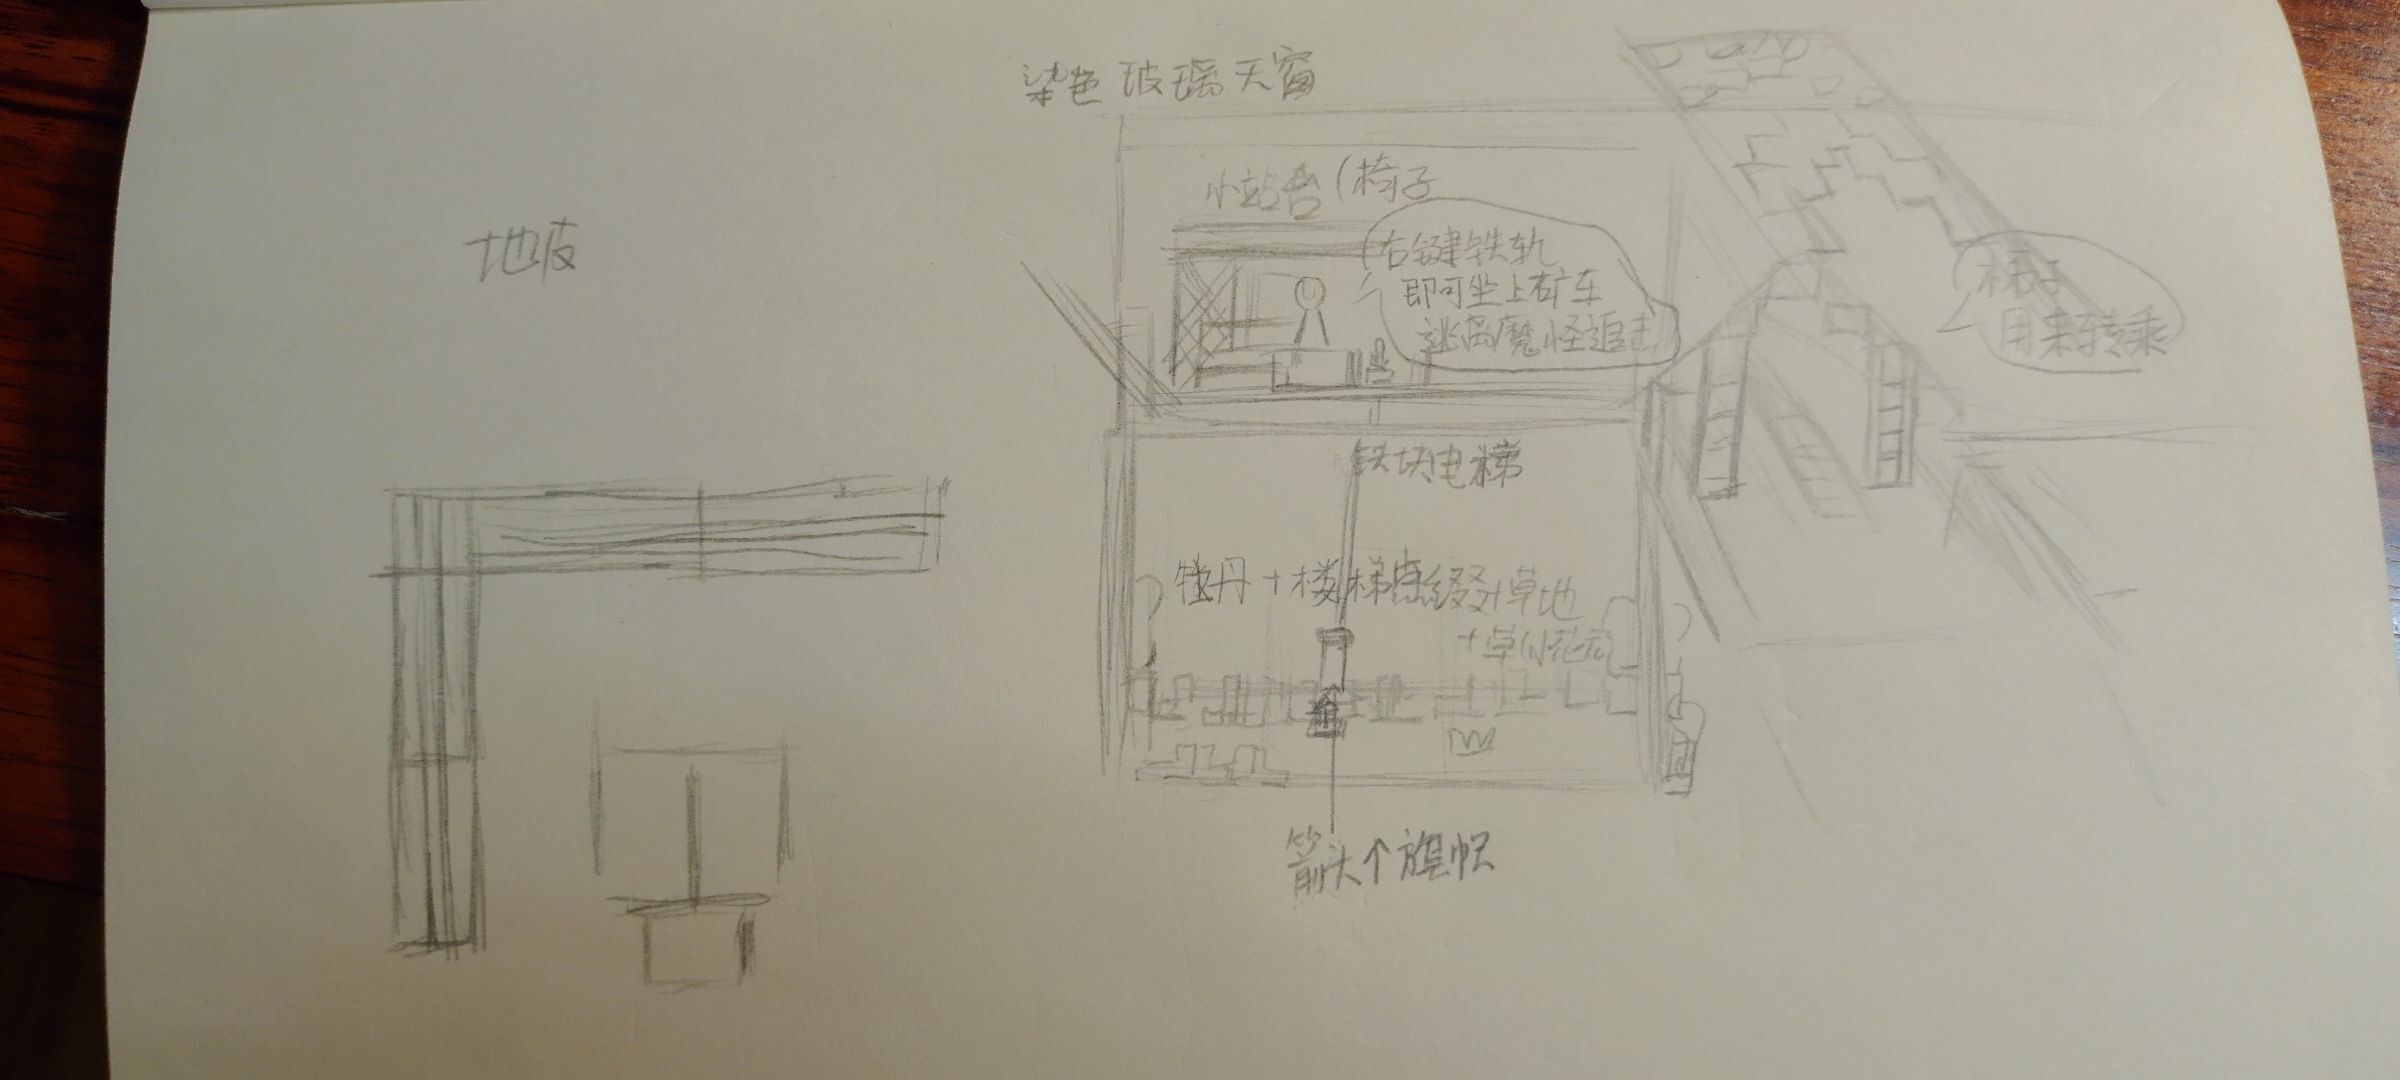 染色玻璃天窗
地皮
小站台(椅子
右键铁轨
即可坐上矿车
逃离魔怪追击
梯子
用来转乘
铁块电梯
牡丹+楼梯点缀+草地
+草小花
箭头个旗帜